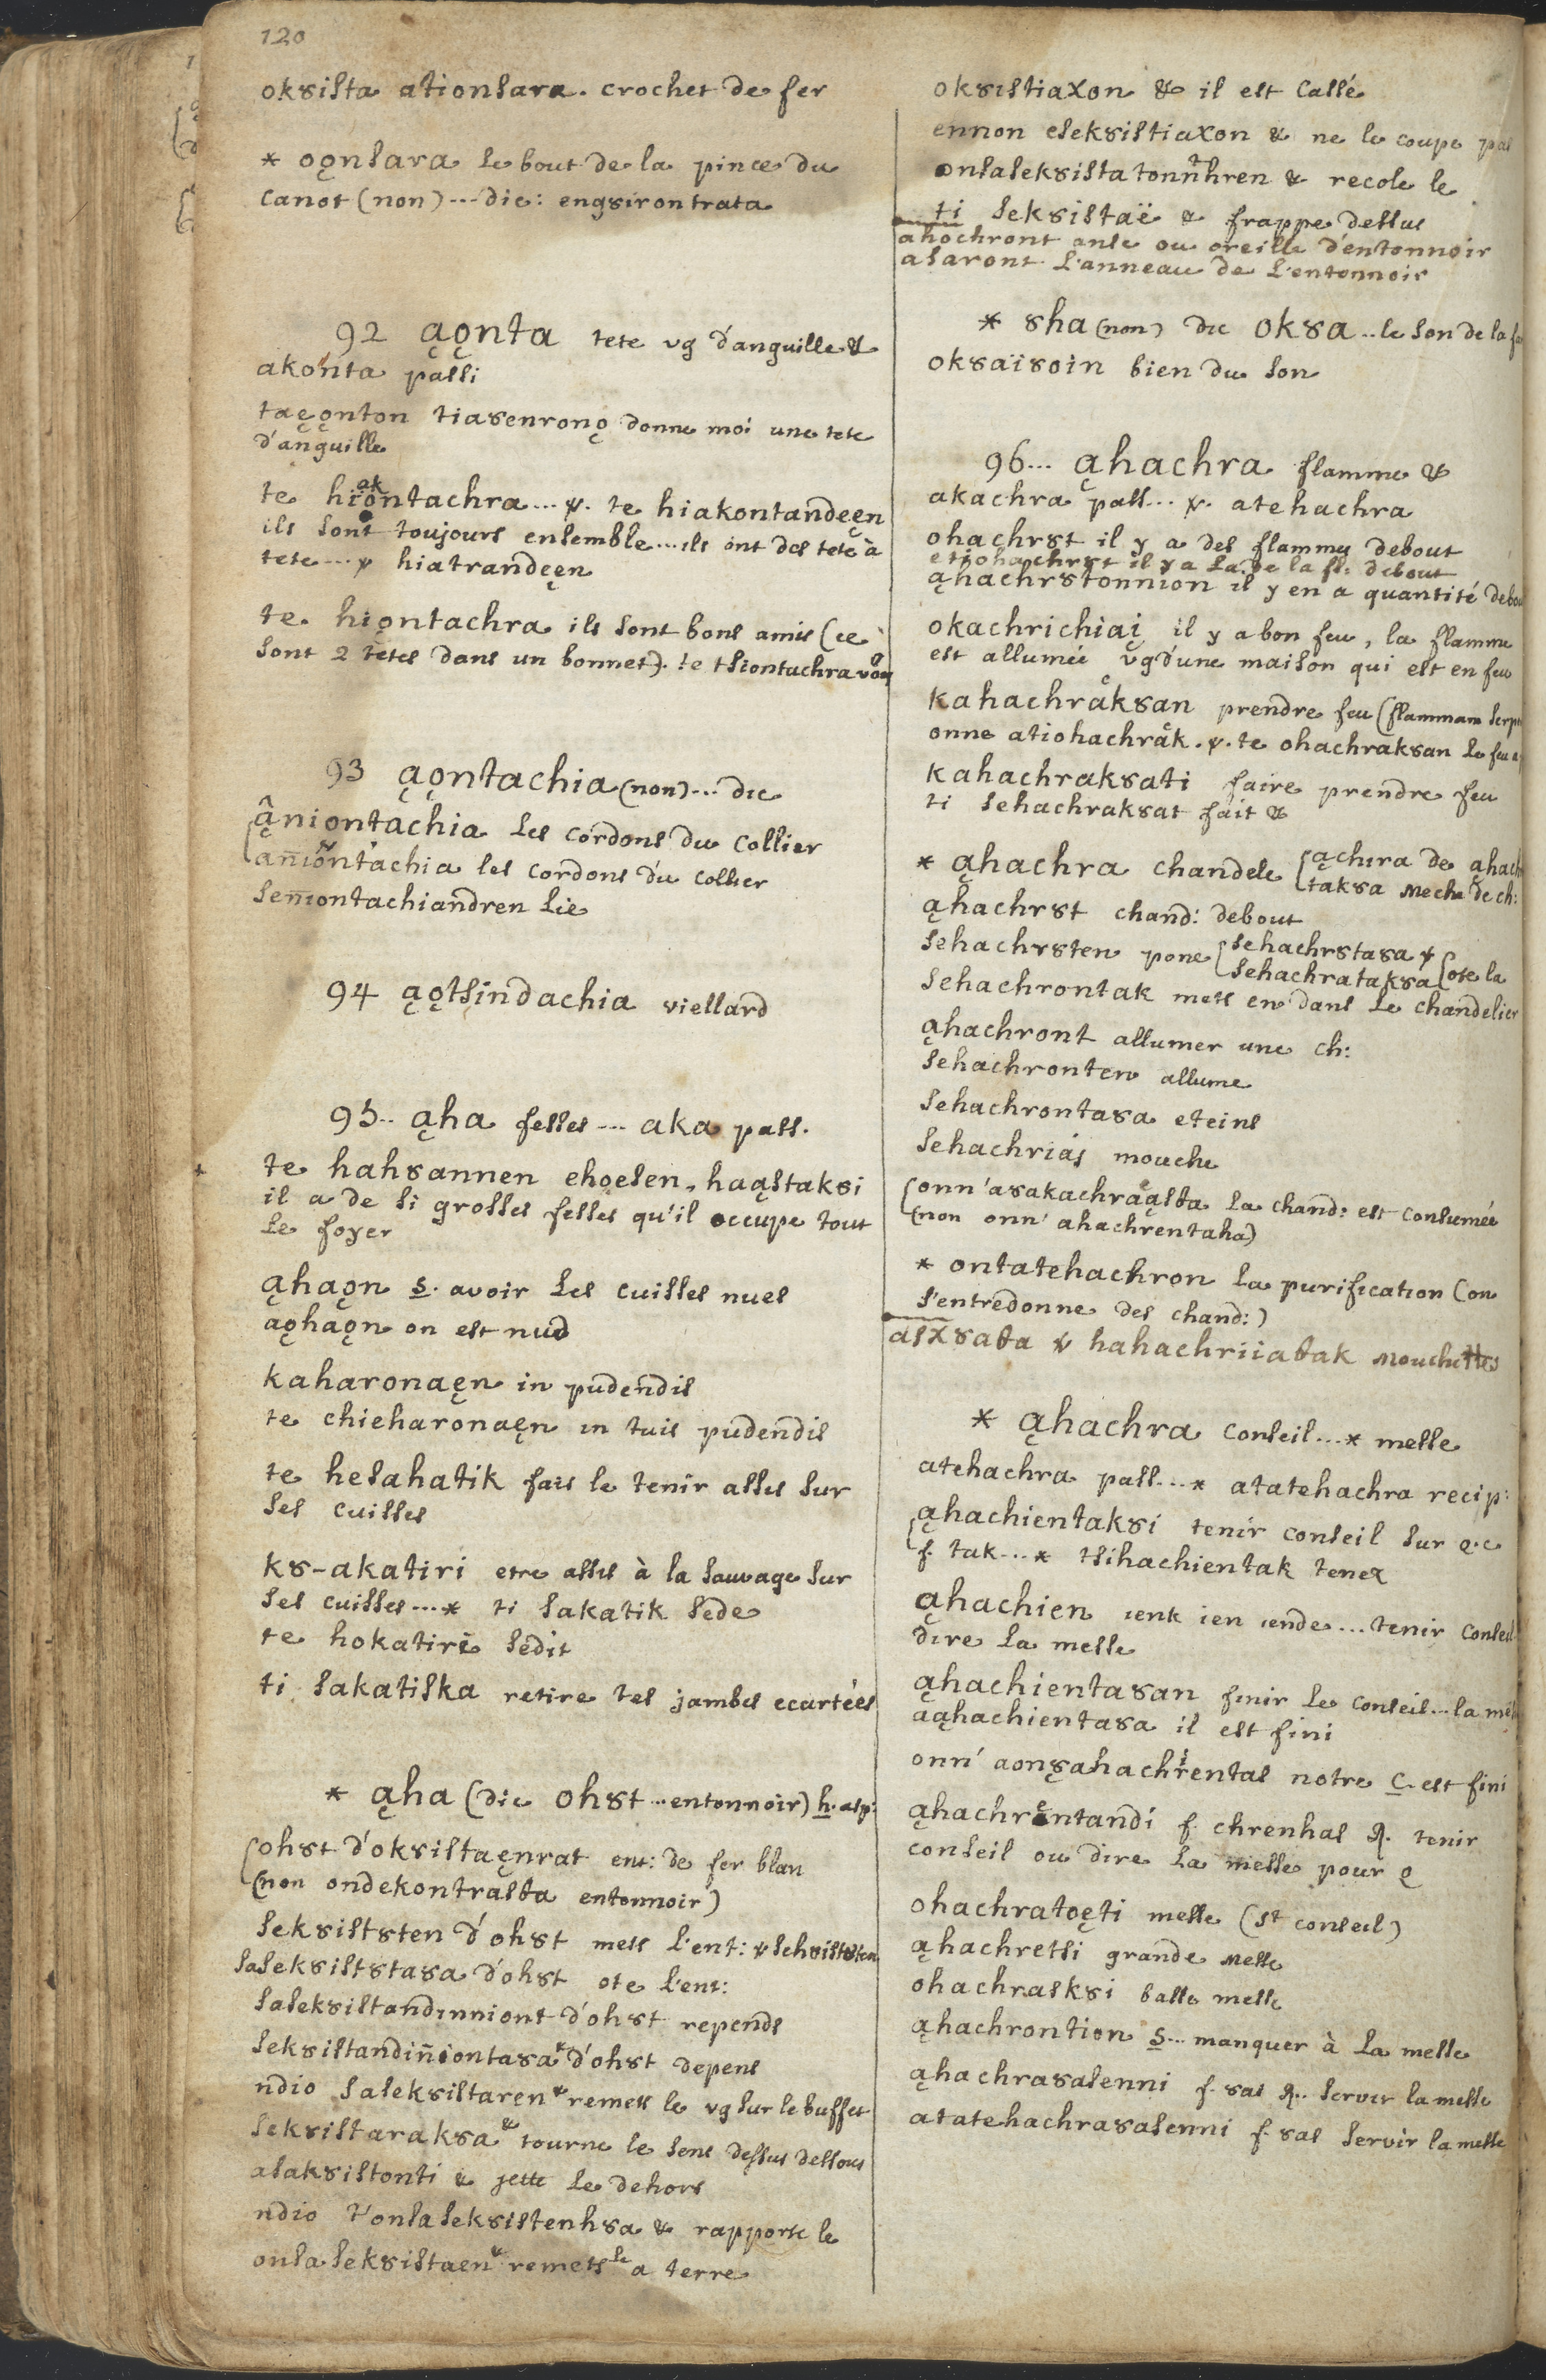 120
okȣista ationsara. crochet de fer
* oo̧nsara le bout de la pince du
canot (non) --- dic: engȣirontrata
92 a̧o̧nta tete vg d'anguille &
akonta passi
tae̜o̧nton tiaȣenrono̧ donne moi une tete
d'anguille
te hiontachra ... v. te hiakontandee̜n
ak
ils sont toujours ensemble ... ils ont des tete à
tete ... v hiatrandee̜n
te hio̧ntachra ils sont bons amis (ce
sont 2 tetes dans un bonnet). te tsiontachra
93 a̧o̧ntachia (non) ... dic
âniontachia les cordons du collier
aniontachia les cordons du collier
seniontachiandren lie
94 a̧o̧tsindachia viellard
95.. a̧ha fesses --- aka pass.
te hahȣannen ehoesen, haa̧staksi
il a de si grosses fesses qu'il occupe tout
le foyer
a̧hao̧n s. avoir les cuisses nues
ao̧hao̧n on est nud
kaharonae̜n in pudendis
te chieharonae̜n in tuis pudendis
te hesahatik fais le tenir assis sur
ses cuisses
kȣ-akatiri etre assis à la sauvage sur
ses cuisses ... * ti sakatik sede
te hokatiri sedit
ti sakatiska retire tes jambes ecartées
* a̧ha (dic ohȣt ... entonnoir) h. asp:
ohȣt d'okȣistae̜nrat ent: de fer blan
(non ondekontrasta entonnoir)
sekȣistȣten d'ohȣt mets l'ent:
sasekȣistȣtaȣa d'ohȣt ote l'ent:
sasekȣistandinniont d'ohȣt repends
sekȣistandiniontaȣa d'ohȣt depens
ndio sasekȣistaren & remets le vg sur le buffet
sekȣistarakȣa & tourne le sens dessus dessous
asakȣistonti & jette le dehors
ndio t'onsasekȣistenhȣa & rapporte le
onsasekȣistaen & remets le a terre
okȣistiaxon & il est cassé
ennon esekȣistiaxon & ne le coupe pas
onsasekȣistatonnhren & recole le
ti sekȣistaë & frappe dessus
ahochront anse ou oreille d'entonnoir
asaront l'anneau de l'entonnoir
* ȣha (non) dic okȣa .. le son de la
okȣaïȣoin bien du son
96 ... a̧hachra flamme &
akachra pass ... v. atehachra
ohachrȣt il y a des flammes debout
etiohachrȣt il y a la de la fl: debout
a̧hachrȣtonnion il y en a quantité debou
okachrichiai̧ il y a bon feu, la flamme
est allumée vg d'une maison qui est en feu
kahachrakȣan prendre feu (flammam
onne atiohachrak. v. te ohachrakȣan le feu
kahachrakȣati faire prendre feu
ti sehachrakȣat fait &
* a̧hachra chandele a̧chira de a̧hach
takȣa meche de ch:
a̧hachrȣt chand: debout
sehachrȣten pone sehachrȣtaȣa v
sehachratakȣa ote la
sehachrontak mets en dans le chandelier
a̧hachront allumer une ch:
sehachronten allume
sehachrontaȣa eteins
sehachrias mouche
onn'aȣakachraa̧sta la chand: est consumée
(non onn' ahachrentaha)
* ontatehachron la purification (on
s'entredonne des chand:)
hahachriiatak Mouchettes
* a̧hachra conseil ... * messe
atehachra pass ... * atatehachra recip:
a̧hachientakȣi tenir conseil sur q.c
f. tak ... * tsihachientak tenez
a̧hachien ienk ien iende ... tenir conseil
dire la messe
a̧hachientaȣan finir le conseil ... la
aa̧hachientaȣa il est fini
onn' aonȣahachrentas notre c. est fini
a̧hachrentandi f. chrenhas R. tenir
conseil ou dire la messe pour q
ohachratoe̜ti messe (st conseil)
a̧hachretsi grande Messe
ohachrasksi basse messe
a̧hachrontion s ... manquer à la messe
a̧hachraȣasenni f. ȣas R.. servir la messe
atatehachraȣasenni f. ȣas servir la messe